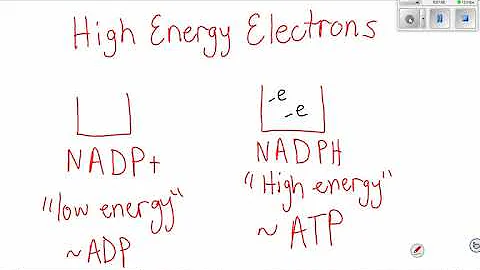 High Energy Electrons
-e
-e
NADP+
NADPH
"low energy"
"High energy"
~ADP
~ATP